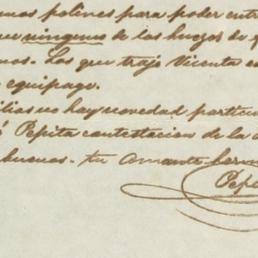 mos polines para poder entr
ue ninguno de los huezos de
nos. Los que trajo Vicente e
equipago.
ilias no hay novedad particu
ó Pepita contestacion de la
buenos. tu amante her
Pepe